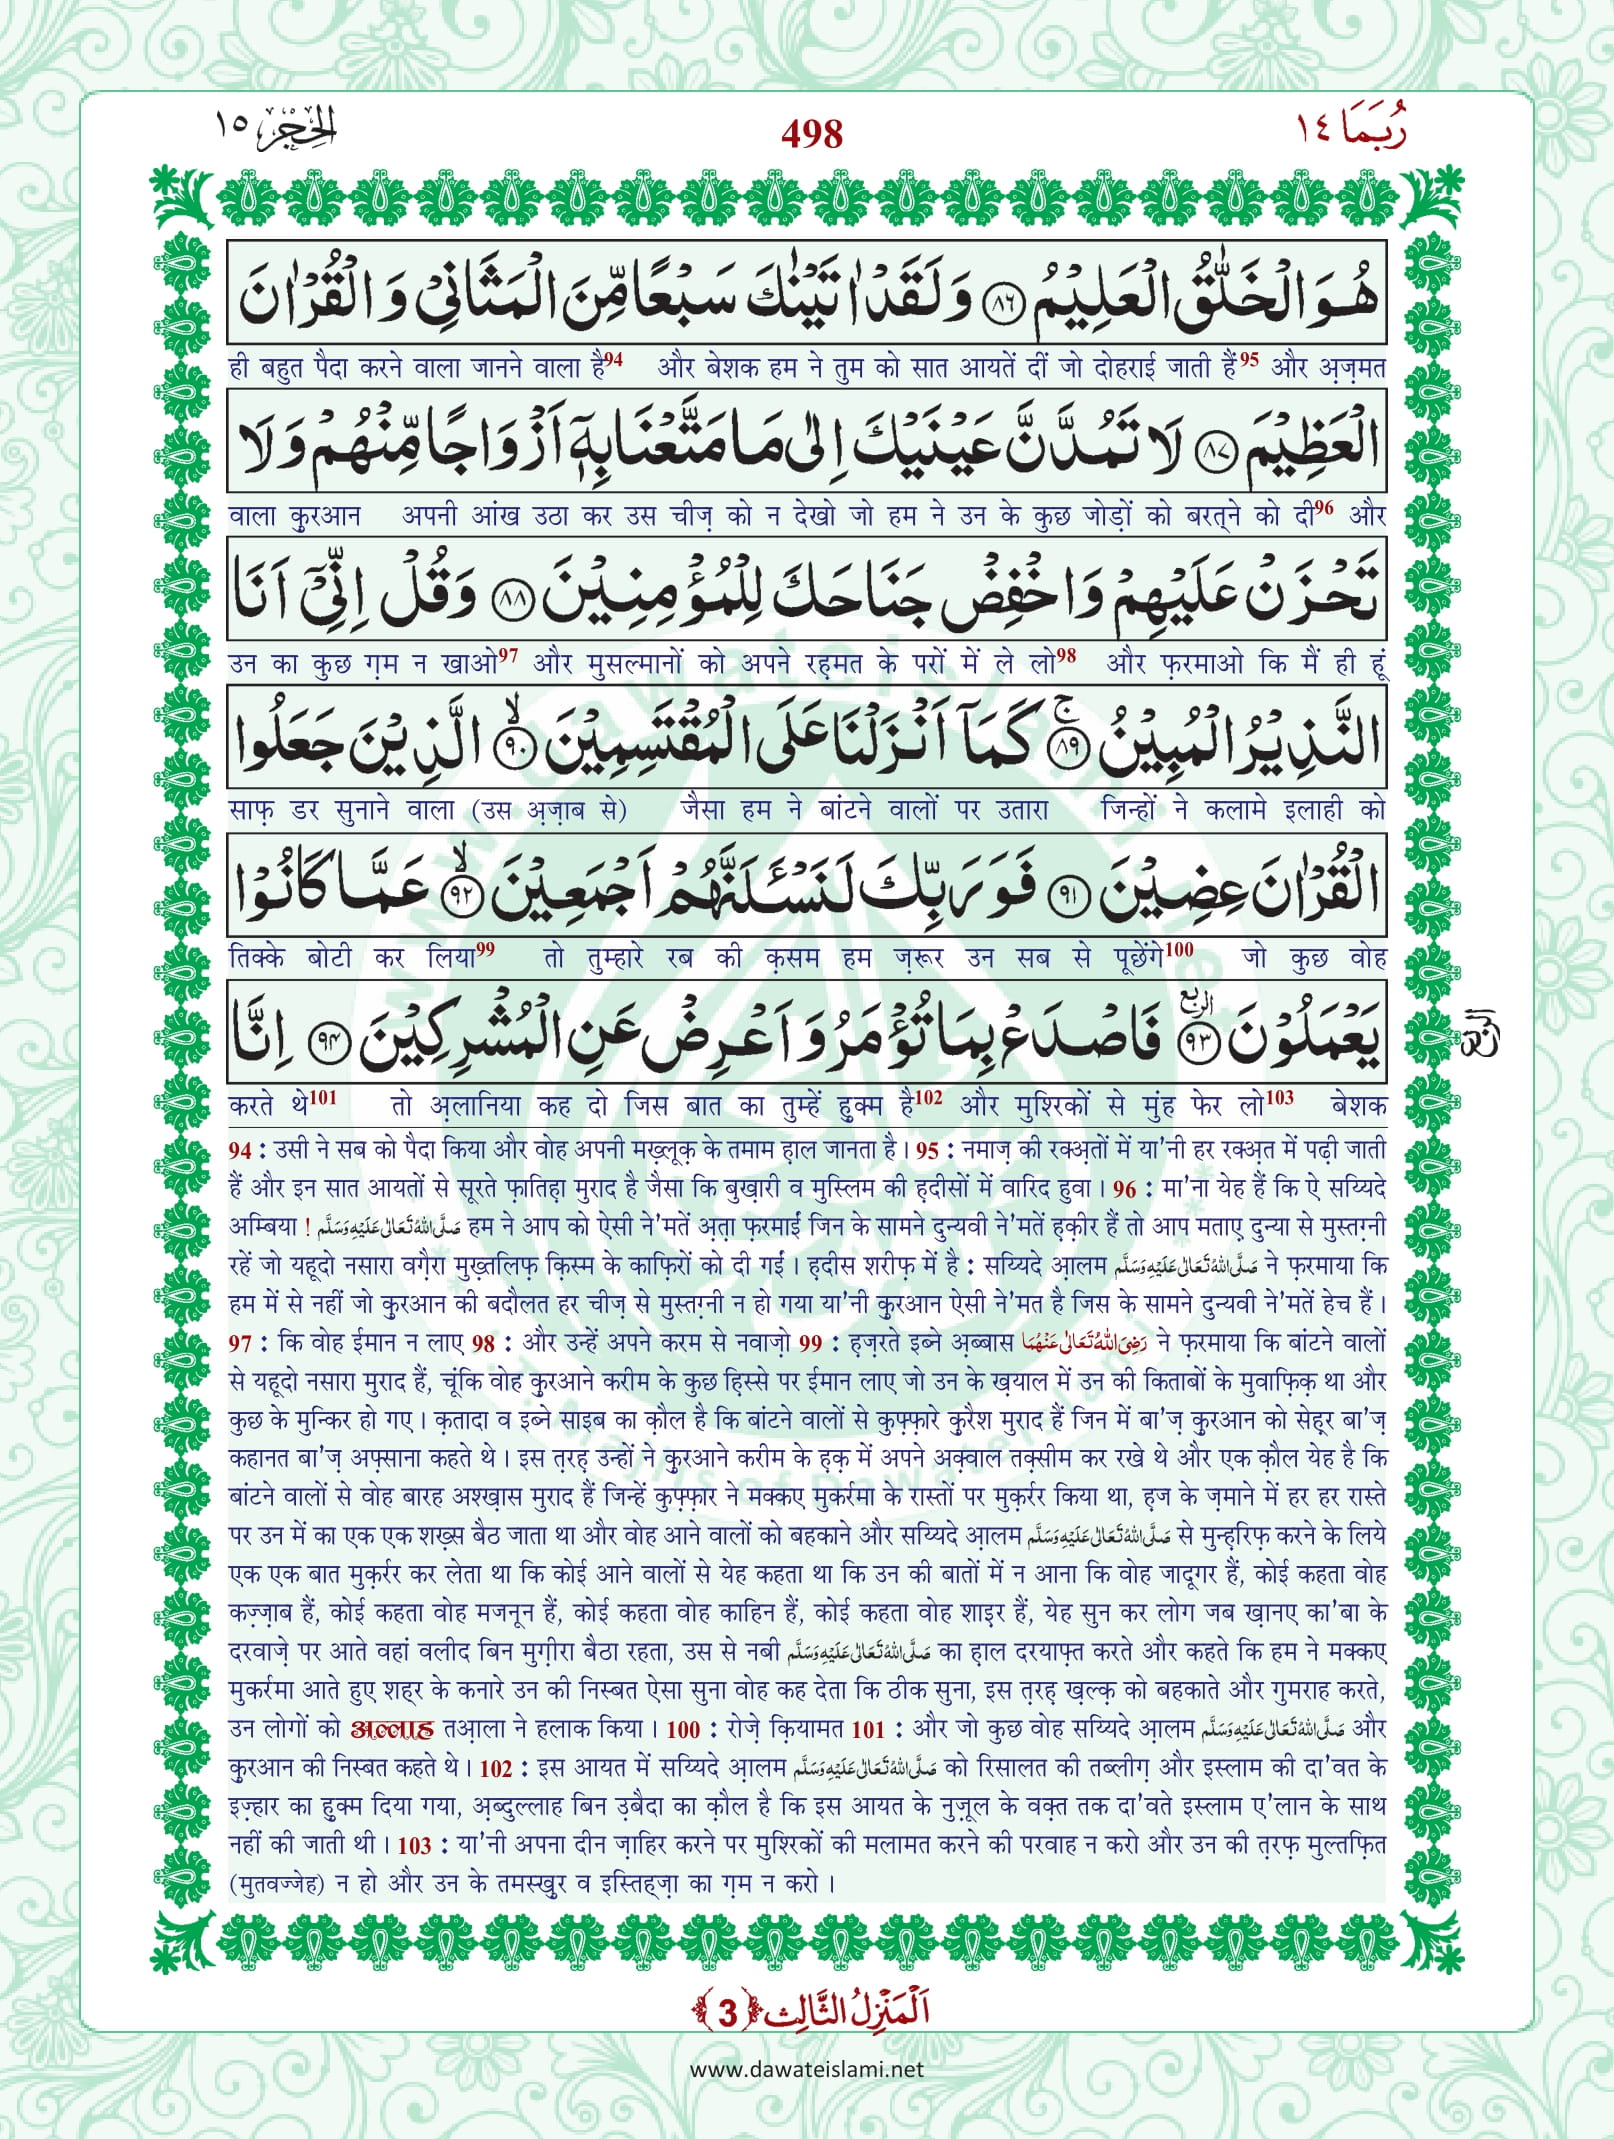 رُبَمَا ١٤
498
الحِجْر ١٥
هُوَ الْخَلّٰقُ الْعَلِيْمُ ﴿۸۶﴾ وَ لَقَدْ اٰتَيْنٰكَ سَبْعًا مِّنَ الْمَثَانِيْ وَ الْقُرْاٰنَ
ही बहुत पैदा करने वाला जानने वाला है94 और बेशक हम ने तुम को सात आयतें दीं जो दोहराई जाती हैं95 और अ़ज़मत
الْعَظِيْمَ ﴿۸۷﴾ لَا تَمُدَّنَّ عَيْنَيْكَ اِلٰى مَا مَتَّعْنَا بِهٖۤ اَزْوَاجًا مِّنْهُمْ وَ لَا
वाला क़ुरआन अपनी आंख उठा कर उस चीज़ को न देखो जो हम ने उन के कुछ जोड़ों को बरत्ने को दी96 और
تَحْزَنْ عَلَيْهِمْ وَ اخْفِضْ جَنَاحَكَ لِلْمُؤْمِنِيْنَ ﴿۸۸﴾ وَ قُلْ اِنِّيْۤ اَنَا
उन का कुछ ग़म न खाओ97 और मुसल्मानों को अपने रह़मत के परों में ले लो98 और फ़रमाओ कि मैं ही हूं
النَّذِيْرُ الْمُبِيْنُ ﴿۸۹﴾ۚ كَمَاۤ اَنْزَلْنَا عَلَى الْمُقْتَسِمِيْنَ ﴿۹۰﴾ۙ الَّذِيْنَ جَعَلُوا
साफ़ डर सुनाने वाला (उस अ़ज़ाब से) जैसा हम ने बांटने वालों पर उतारा जिन्हों ने कलामे इलाही को
الْقُرْاٰنَ عِضِيْنَ ﴿۹۱﴾ فَوَرَبِّكَ لَنَسْـَٔلَنَّهُمْ اَجْمَعِيْنَ ﴿۹۲﴾ۙ عَمَّا كَانُوْا
तिक्के बोटी कर लिया99 तो तुम्हारे रब की क़सम हम ज़रूर उन सब से पूछेंगे100 जो कुछ वोह
يَعْمَلُوْنَ ﴿۹۳﴾ الربع فَاصْدَعْ بِمَا تُؤْمَرُ وَ اَعْرِضْ عَنِ الْمُشْرِكِيْنَ ﴿۹۴﴾ اِنَّا
الربع
करते थे101 तो अ़लानिया कह दो जिस बात का तुम्हें ह़ुक्म है102 और मुश्रिकों से मुंह फेर लो103 बेशक
94 : उसी ने सब को पैदा किया और वोह अपनी मख़्लूक़ के तमाम ह़ाल जानता है। 95 : नमाज़ की रक्अ़तों में या'नी हर रक्अ़त में पढ़ी जाती
हैं और इन सात आयतों से सूरते फ़ातिह़ा मुराद है जैसा कि बुख़ारी व मुस्लिम की ह़दीसों में वारिद हुवा। 96 : मा'ना येह हैं कि ऐ सय्यिदे
अम्बिया ! صَلَّى اللّٰهُ تَعَالٰى عَلَيْهِ وَسَلَّم हम ने आप को ऐसी ने'मतें अ़त़ा फ़रमाईं जिन के सामने दुन्यवी ने'मतें ह़क़ीर हैं तो आप मताए़ दुन्या से मुस्तग़्नी
रहें जो यहूदो नसारा वग़ैरा मुख़्तलिफ़ क़िस्म के काफ़िरों को दी गईं। ह़दीस शरीफ़ में है : सय्यिदे आ़लम صَلَّى اللّٰهُ تَعَالٰى عَلَيْهِ وَسَلَّم ने फ़रमाया कि
हम में से नहीं जो क़ुरआन की बदौलत हर चीज़ से मुस्तग़्नी न हो गया या'नी क़ुरआन ऐसी ने'मत है जिस के सामने दुन्यवी ने'मतें हेच हैं।
97 : कि वोह ईमान न लाए 98 : और उन्हें अपने करम से नवाज़ो 99 : ह़ज़रते इब्ने अ़ब्बास رَضِىَ اللّٰهُ تَعَالٰى عَنْهُمَا ने फ़रमाया कि बांटने वालों
से यहूदो नसारा मुराद हैं, चूंकि वोह क़ुरआने करीम के कुछ ह़िस्से पर ईमान लाए जो उन के ख़याल में उन की किताबों के मुवाफ़िक़ था और
कुछ के मुन्किर हो गए। क़तादा व इब्ने साइब का क़ौल है कि बांटने वालों से कुफ़्फ़ारे क़ुरैश मुराद हैं जिन में बा'ज़ क़ुरआन को सेह़र बा'ज़
कहानत बा'ज़ अफ़्साना कहते थे। इस त़रह़ उन्हों ने क़ुरआने करीम के ह़क़ में अपने अक़्वाल तक़्सीम कर रखे थे और एक क़ौल येह है कि
बांटने वालों से वोह बारह अश्ख़ास मुराद हैं जिन्हें कुफ़्फ़ार ने मक्कए मुकर्रमा के रास्तों पर मुक़र्रर किया था, ह़ज के ज़माने में हर हर रास्ते
पर उन में का एक एक शख़्स बैठ जाता था और वोह आने वालों को बहकाने और सय्यिदे आ़लम صَلَّى اللّٰهُ تَعَالٰى عَلَيْهِ وَسَلَّم से मुन्ह़रिफ़ करने के लिये
एक एक बात मुक़र्रर कर लेता था कि कोई आने वालों से येह कहता था कि उन की बातों में न आना कि वोह जादूगर हैं, कोई कहता वोह
कज़्ज़ाब हैं, कोई कहता वोह मजनून हैं, कोई कहता वोह काहिन हैं, कोई कहता वोह शाइ़र हैं, येह सुन कर लोग जब ख़ानए का'बा के
दरवाज़े पर आते वहां वलीद बिन मुग़ीरा बैठा रहता, उस से नबी صَلَّى اللّٰهُ تَعَالٰى عَلَيْهِ وَسَلَّم का ह़ाल दरयाफ़्त करते और कहते कि हम ने मक्कए
मुकर्रमा आते हुए शहर के कनारे उन की निस्बत ऐसा सुना वोह कह देता कि ठीक सुना, इस त़रह़ ख़ल्क़ को बहकाते और गुमराह करते,
उन लोगों को अल्लाह तआ़ला ने हलाक किया। 100 : रोज़े क़ियामत 101 : और जो कुछ वोह सय्यिदे आ़लम صَلَّى اللّٰهُ تَعَالٰى عَلَيْهِ وَسَلَّم और
क़ुरआन की निस्बत कहते थे। 102 : इस आयत में सय्यिदे आ़लम صَلَّى اللّٰهُ تَعَالٰى عَلَيْهِ وَسَلَّم को रिसालत की तब्लीग़ और इस्लाम की दा'वत के
इज़्हार का ह़ुक्म दिया गया, अ़ब्दुल्लाह बिन उ़बैदा का क़ौल है कि इस आयत के नुज़ूल के वक़्त तक दा'वते इस्लाम ए'लान के साथ
नहीं की जाती थी। 103 : या'नी अपना दीन ज़ाहिर करने पर मुश्रिकों की मलामत करने की परवाह न करो और उन की त़रफ़ मुल्तफ़ित
(मुतवज्जेह) न हो और उन के तमस्ख़ुर व इस्तिह्ज़ा का ग़म न करो।
اَلْمَنْزِلُ الثَّالِث ﴿3﴾
www.dawateislami.net